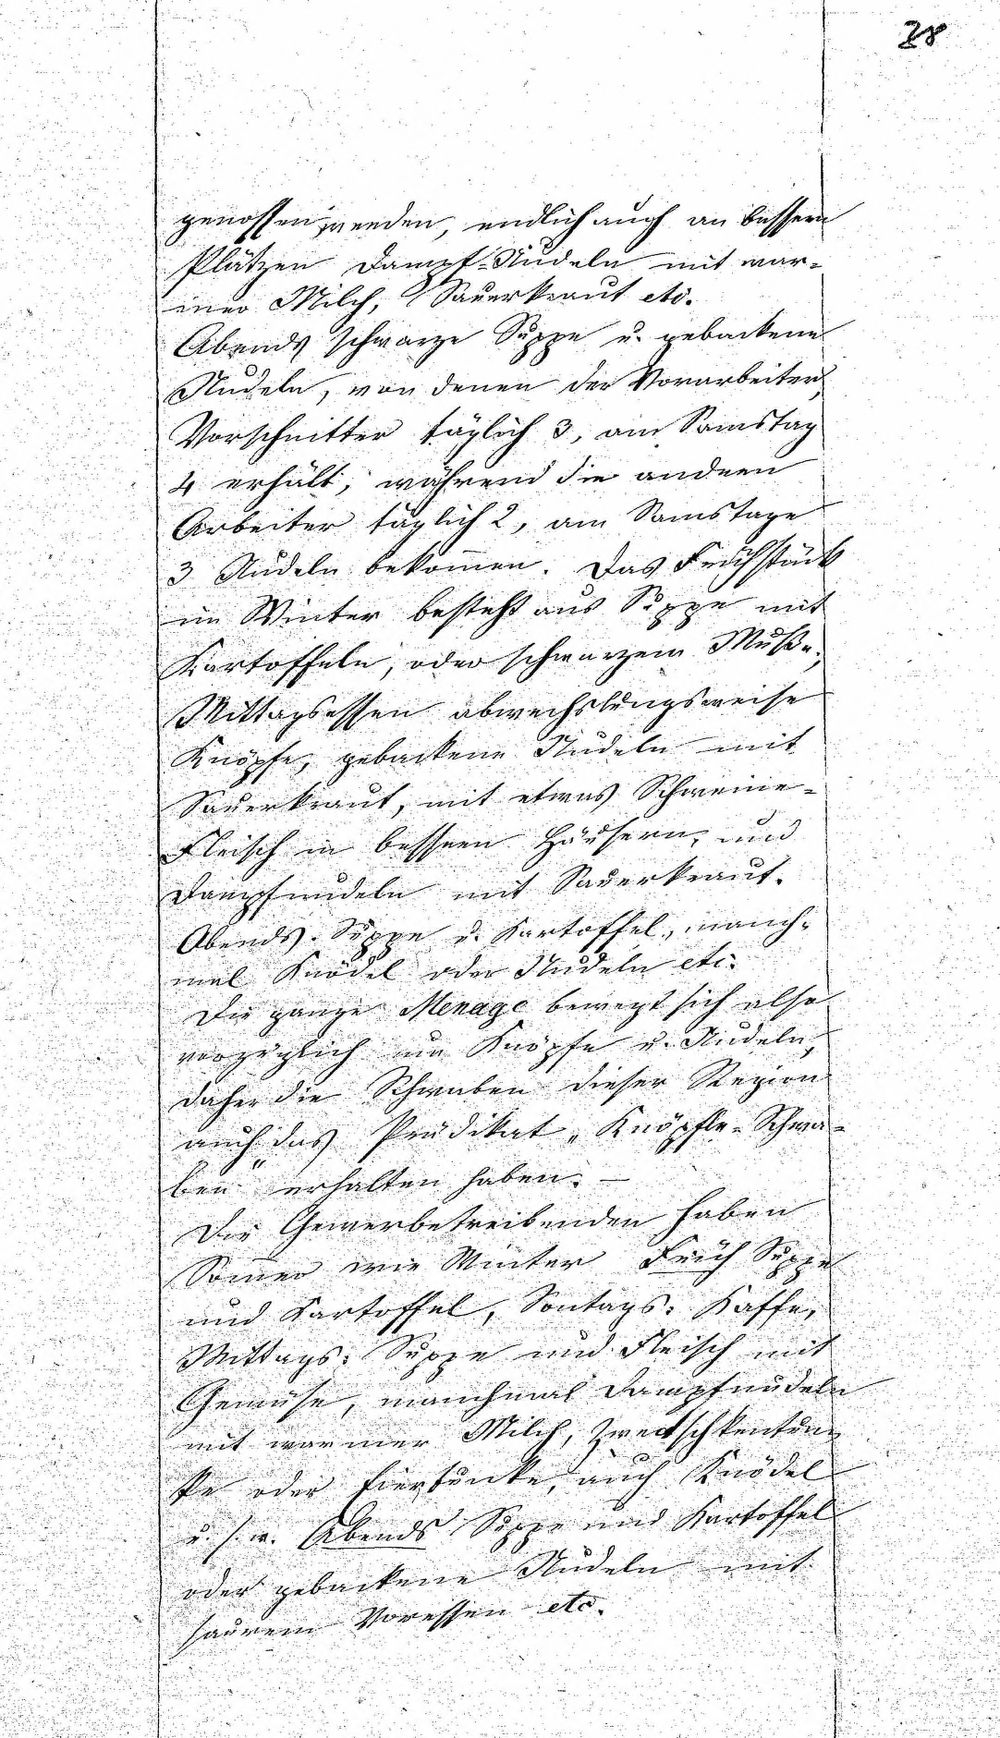 28
genossen werden, endlich auch an bessern
Plätzen Dampf-Nudeln mit war-
mer Milch, Sauerkraut etc.
Abends schwarze Suppe u. gebackene
Nudeln, von denen der Vorarbeiter,
Vorschnitter täglich 3, am Samstag
4 erhält, während die andern
Arbeiter täglich 2, am Samstage
3 Nudeln bekom̄en. Das Frühstück
im Winter besteht aus Suppe mit
Kartoffeln, oder schwarzem Muße,
Mittagsessen abwechslungsweise
Knöpfe, gebackene Nudeln mit
Sauerkraut, mit etwas Schweine-
Fleisch in bessern Häusern, und
Dampfnudeln mit Sauerkraut.
Abends. Suppe u. Kartoffel, manch-
mal Knödel oder Nudeln etc.
Die ganze Menage bewegt sich also
vorzüglich um Knöpfe u. Nudeln,
daher die Schwaben dieser Region
auch das Prädikat „Knöpfle-Schwa-
ben" erhalten haben. —
Die Gewerbetreibenden haben
Som̄er wie Winter Früh Suppe
und Kartoffel, Sontags: Kaffe,
Mittags: Suppe und Fleisch mit
Gemüse, manchmal Dampfnudeln
mit warmer Milch, Zwetschkentun-
ke oder Eiertunke, auch Knödel
u. s. w. Abends Suppe und Kartoffel
oder gebackene Nudeln mit
saurem Voressen etc.